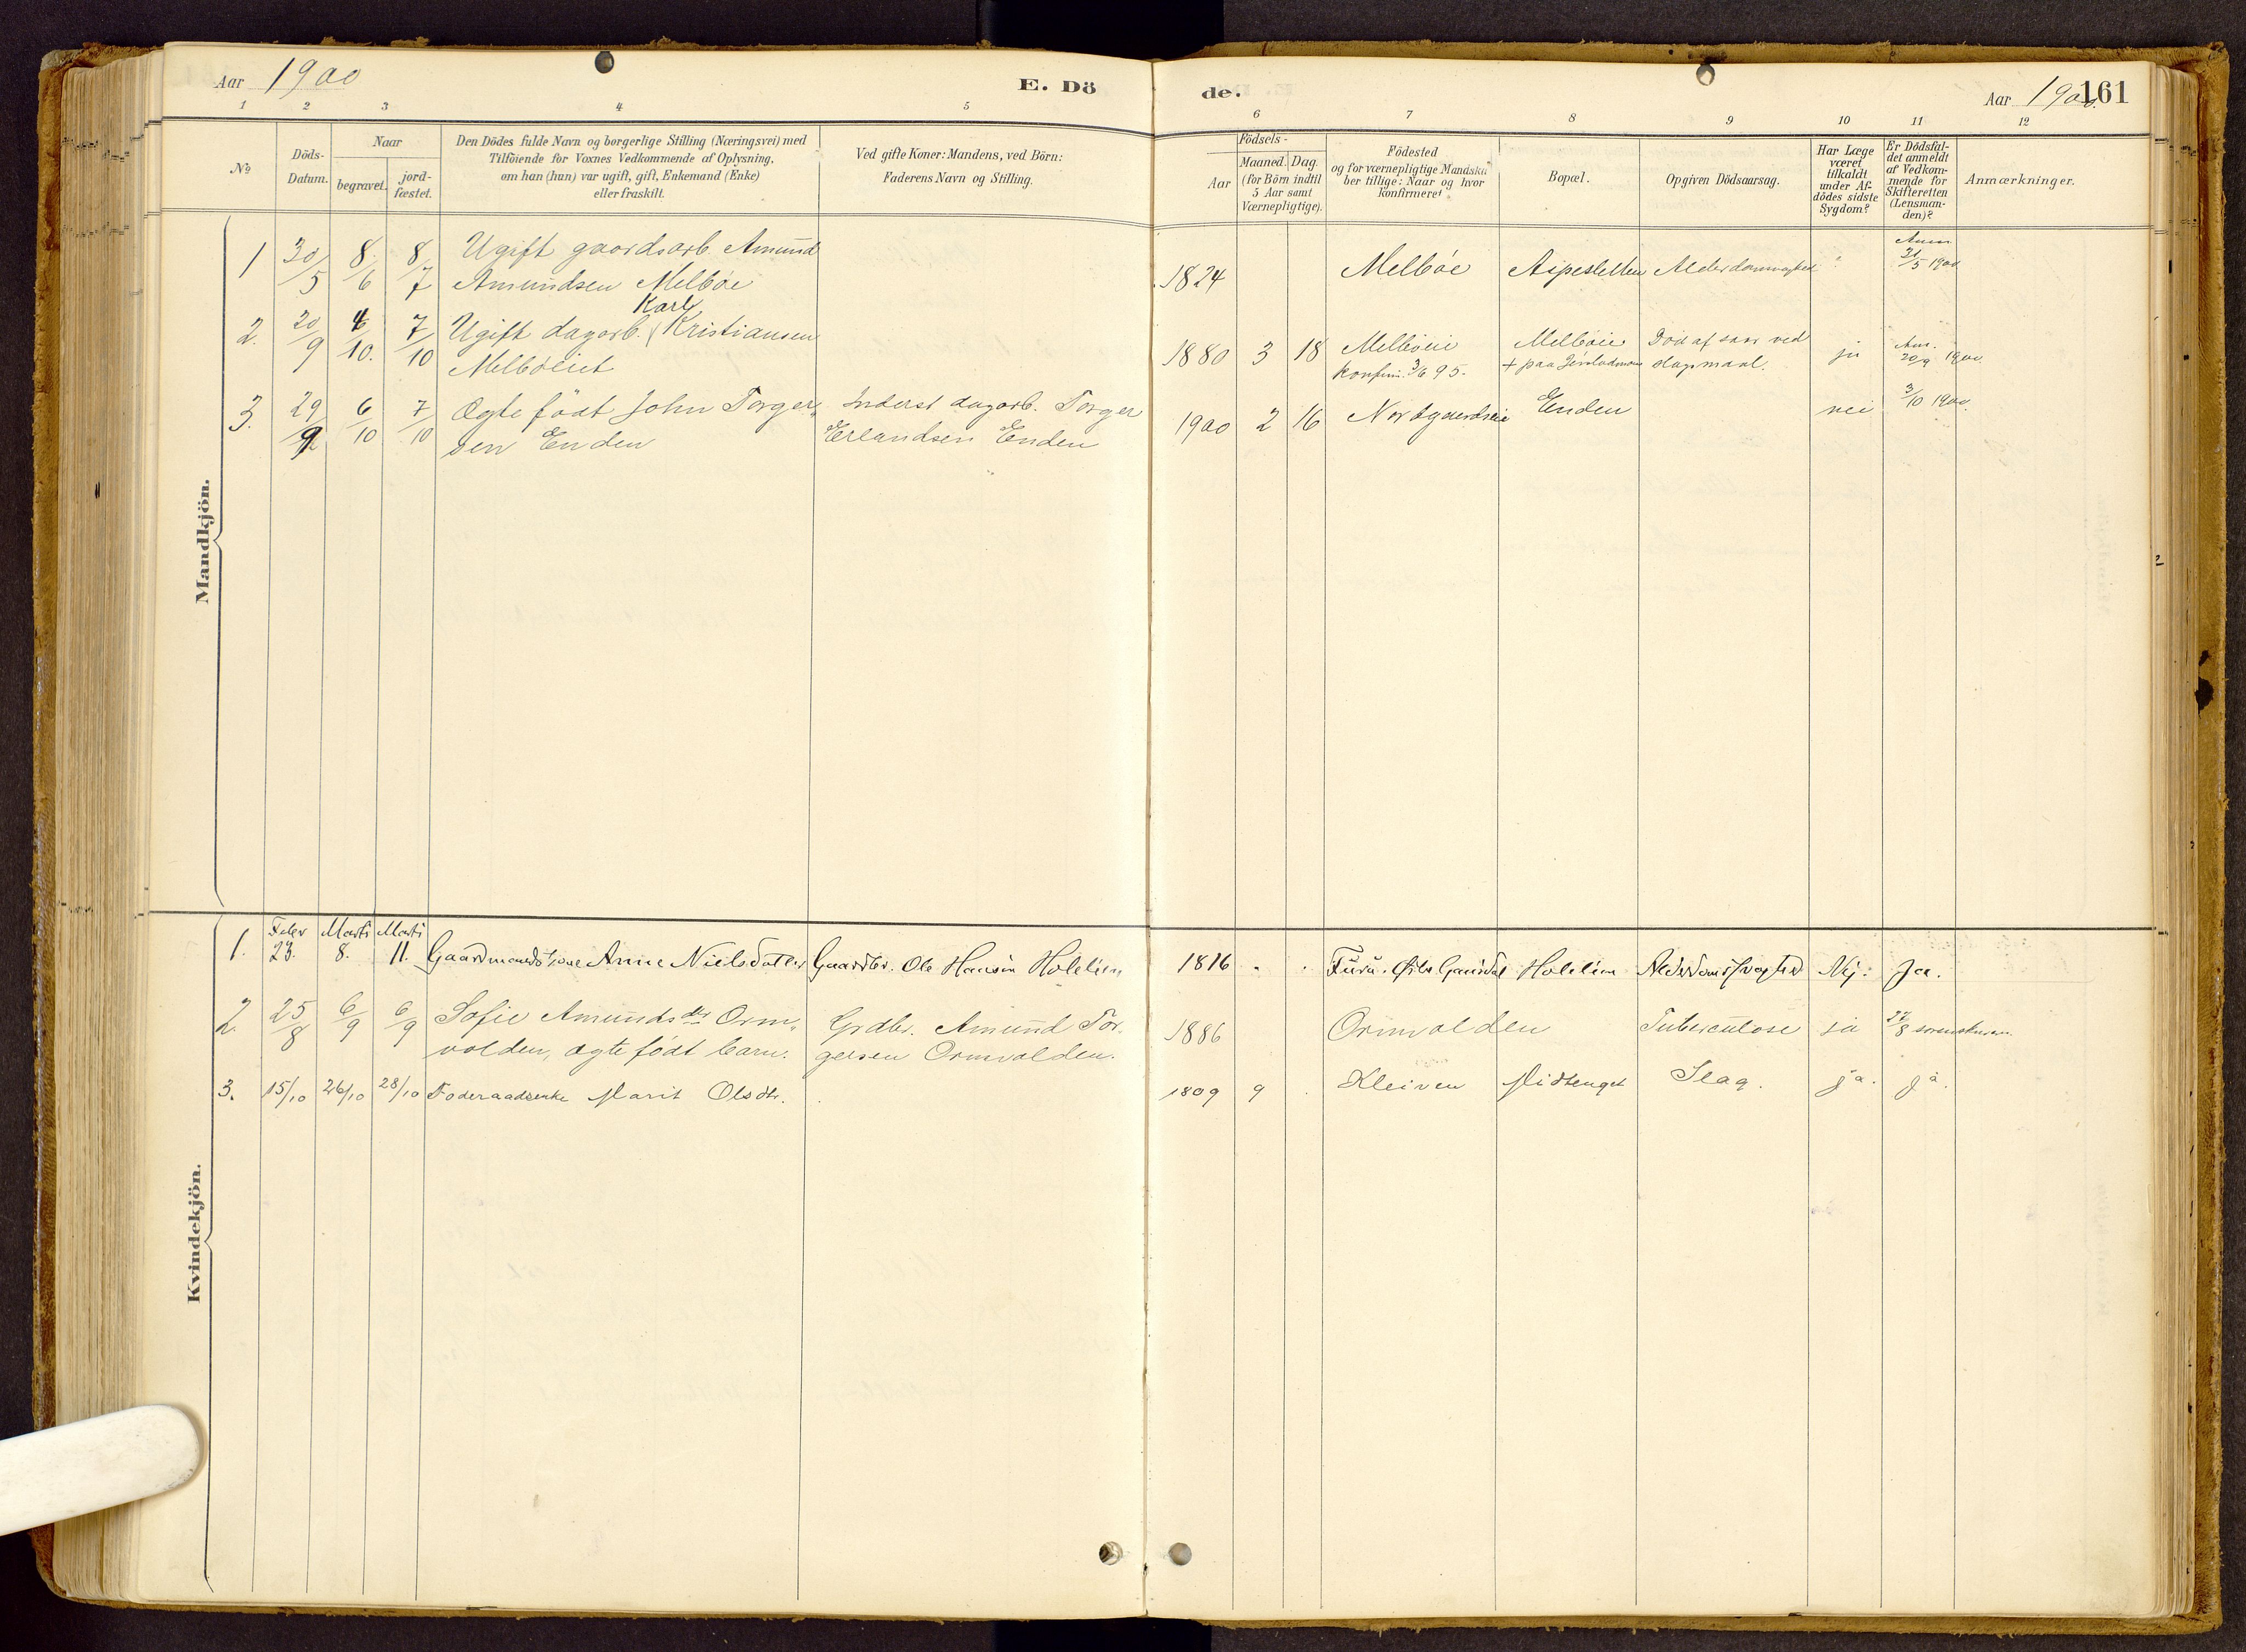 Aar 1900
E. Dö
de.
Aar 1900.
161
1 2 3 4 5 6 7 8 9 10 11 12
No
Döds-
Datum.
Naar
begravet.
jord-
fæstet.
Den Dödes fulde Navn og borgerlige Stilling (Næringsvei) med
Tilföiende for Voxnes Vedkommende af Oplysning,
om han (hun) var ugift, gift, Enkemand (Enke)
eller fraskilt.
Ved gifte Koner: Mandens, ved Börn:
Faderens Navn og Stilling.
Födsels-
Aar
Maaned. Dag.
(for Börn indtil
5 Aar samt
Værnepligtige).
Födested
og for værnepligtige Mandska-
ber tillige: Naar og hvor
konfirmeret
Bopæl.
Opgiven Dödsaarsag.
Har Læge
været
tilkaldt
under Af-
dödes sidste
Sygdom?
Er Dödsfal-
det anmeldt
af Vedkom-
mende for
Skifteretten
(Lensman-
den)?
Anmærkninger.
Mandkjön.
1 30/5 8/6 8/7 Ugift gaardsarb. Amund
Amundsen Melböe
1824 Melböe Aipesletten Alderdomsvaghed
31/5 1900
2. 20/9 4/10. 7/10 Ugift dagarb. Karl Kristiansen
Melböeiet
1880 3 18 Melböeie
konfirm. 3/6 95.
Melböeie
Död af saar ved
slagsmaal.
ja Anm. 20/9 1900
3. 29/9 6/10 7/10 Ægte födt John Torger-
sen Enden
Inderst dagarb. Torger
Erlandsen Enden
1900 2 16 Nordgaardseie Enden nei 3/10 1900.
Kvindekjön.
1. Febr 23. Marts 8. Marts 11. Gaardmandskone Anne Nielsdatter Gaardbr. Ole Hansen Holelien 1816 Furu. Östr. Gausdal Holelien Alderdomssvaghed Nej. Ja.
2. 25/8 6/9 6/9 Sofie Amundsdtr Orm-
volden, ægte födt barn.
Grdbr. Amund Tor-
gersen Ormvolden.
1886 Ormvolden Tuberculose ja 27/8
3. 15/10 26/10 28/10 Foderaadsenke Marit Olsdtr. 1809 9 Kleiven Midtenget Slag. ja. ja.